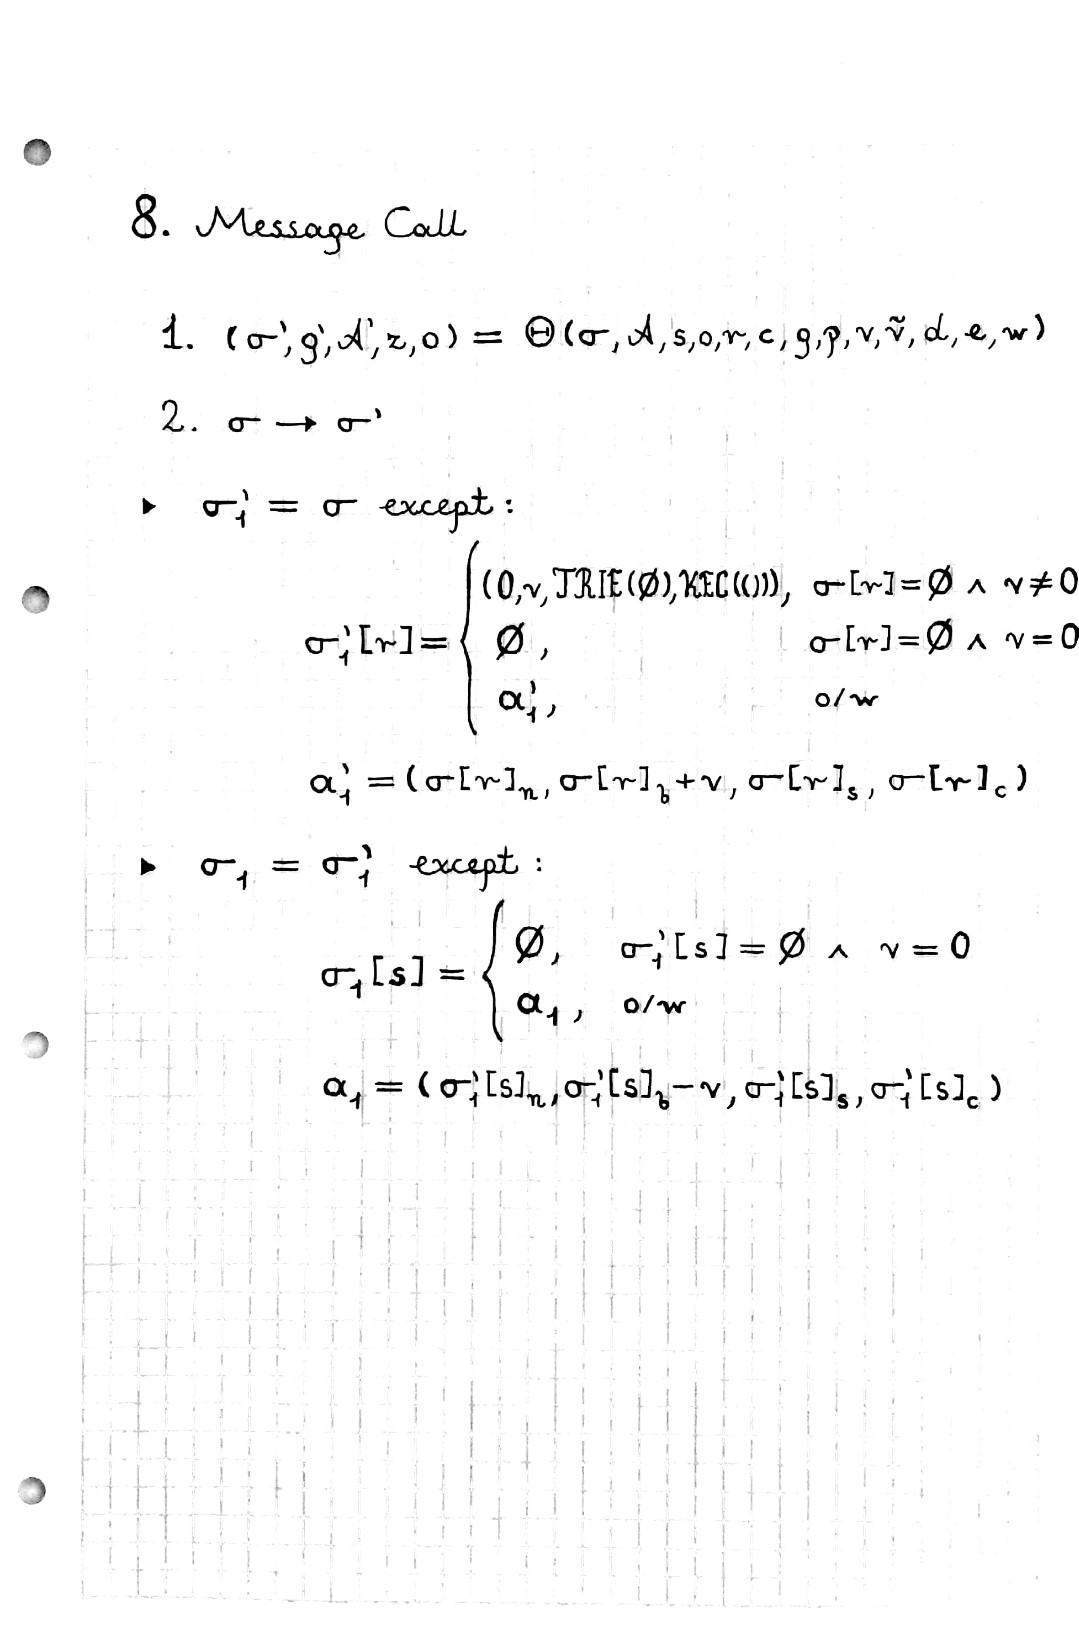 8. Message Call
1. (σ', g', A', z, o) = Θ(σ, A, s, o, r, c, g, p, v, ṽ, d, e, w)
2. σ → σ'
▸ σ₁' = σ except:
(0, v, TRIE(Ø), KEC(())), σ[r] = Ø ∧ v ≠ 0
σ₁'[r] = { Ø, σ[r] = Ø ∧ v = 0
α₁', o/w
α₁' = (σ[r]ₙ, σ[r]_b + v, σ[r]ₛ, σ[r]_c)
▸ σ₁ = σ₁' except:
Ø, σ₁'[s] = Ø ∧ v = 0
σ₁[s] = {
α₁, o/w
α₁ = (σ₁'[s]ₙ, σ₁'[s]_b − v, σ₁'[s]ₛ, σ₁'[s]_c)